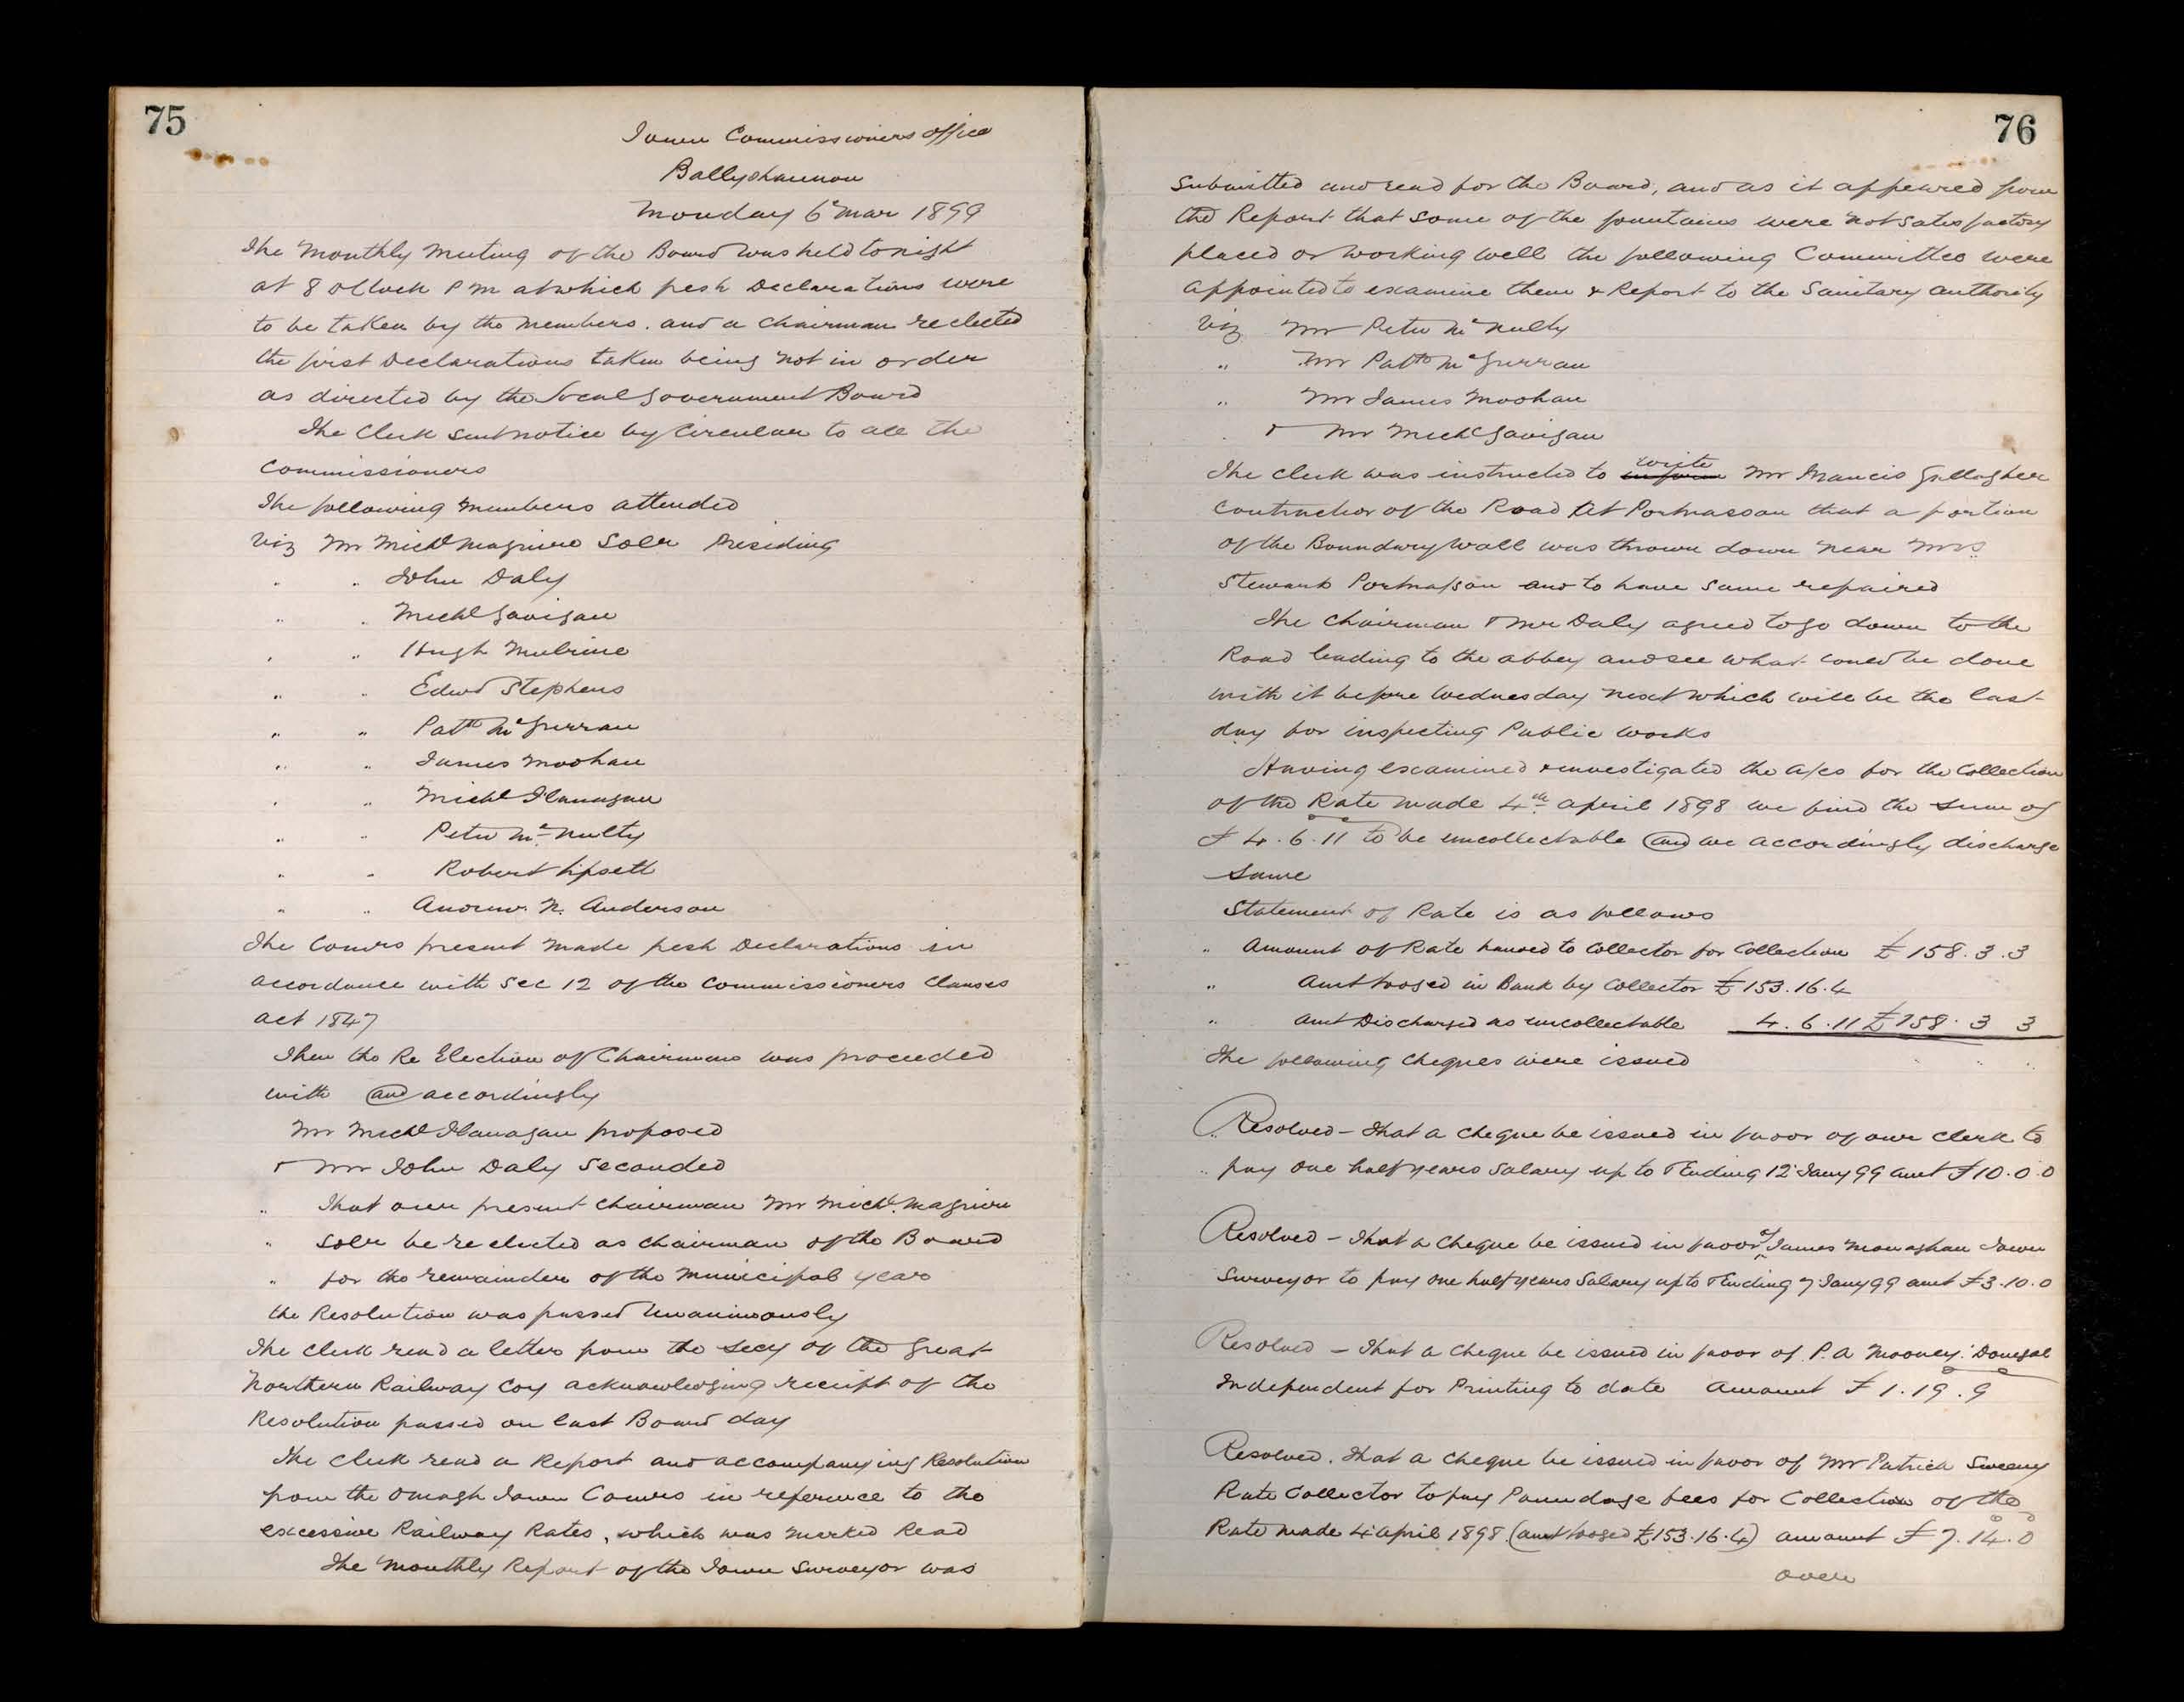 75
Town Commissioners office
Ballyshannon
Monday 6th Mar 1899
The Monthly Meeting of the Board was held to night
at 8 oClock P M at which fresh Declarations were
to be taken by the Members. and a Chairman reelected
the first Declarations taken being not in order
as directed by the Local Government Board
The Clerk sent notice by Circular to all the
Commissioners
The following Members attended
Viz Mr Michl Maguire Solr Presiding
" " John Daly
" " Michl Gavigan
" " Hugh Mulrine
" " Edwd Stephens
" " Patk McGurran
" " James Moohan
" " Michl Flanagan
" " Peter McNulty
" " Robert Lipsett
" " Andrew N. Anderson
The Comrs present made fresh Declarations in
accordance with Sec 12 of the Commissioners Clauses
Act 1847
Then the Re Election of Chairman was proceeded
with and accordingly
Mr Michl Flanagan proposed
& Mr John Daly Seconded
" That our present Chairman Mr Michl. Maguire
" Solr be reelected as Chairman of the Board
" for the remainder of the Municipal year
the Resolution was passed Unanimously
The Clerk read a letter from the Secy of the Great
Northern Railway Coy acknowledging receipt of the
Resolution passed on last Board day
The Clerk read a Report and accompanying Resolution
from the Omagh Town Comrs in reference to the
excessive Railway Rates, which was marked Read
The Monthly Report of the Town Surveyor was
76
Submitted and read for the Board, and as it appeared from
the Report that some of the fountains were not satisfactory
placed or working well the following Committee were
appointed to examine them & Report to the Sanitary Authority
Viz Mr Peter McNulty
" Mr Patk McGurran
" Mr James Moohan
& Mr Michl Gavigan
The Clerk was instructed to inform write Mr Francis Gallagher
Contractor of the Road at Portnasson that a portion
of the Boundary Wall was thrown down near Mrs
Stewarts Portnasson and to have same repaired
The Chairman & Mr Daly agreed to go down to the
Road leading to the abbey and see what could be done
with it before Wednesday next which will be the last
day for inspecting Public works
Having examined & investigated the a/cs for the Collection
of the Rate made 4th April 1898 we find the sum of
£ 4.6.11 to be uncollectable and we accordingly discharge
Same
Statement of Rate is as follows
" Amount of Rate handed to Collector for Collection £ 158.3.3
" Amt lodged in Bank by Collector £ 153.16.4
" Amt Discharged as uncollectable 4.6.11 £ 158.3 3
The following Cheques were issued
Resolved - That a Cheque be issued in favor of our Clerk to
" pay one half years Salary up to & Ending 12 Jany 99 amt £10.0.0
Resolved - That a Cheque be issued in favor of James Monaghan Town
Surveyor to pay one half years Salary up to & Ending 7 Jany 99 amt £3.10.0
Resolved - That a Cheque be issued in favor of P.A Mooney. Donegal
Independent for Printing to date Amount £ 1.19.9
Resolved. That a Cheque be issued in favor of Mr Patrick Sweeny
Rate Collector to pay Poundage fees for Collection of the
Rate made 4 April 1898 (amt lodged £153.16.4) amount £ 7.14.0
over